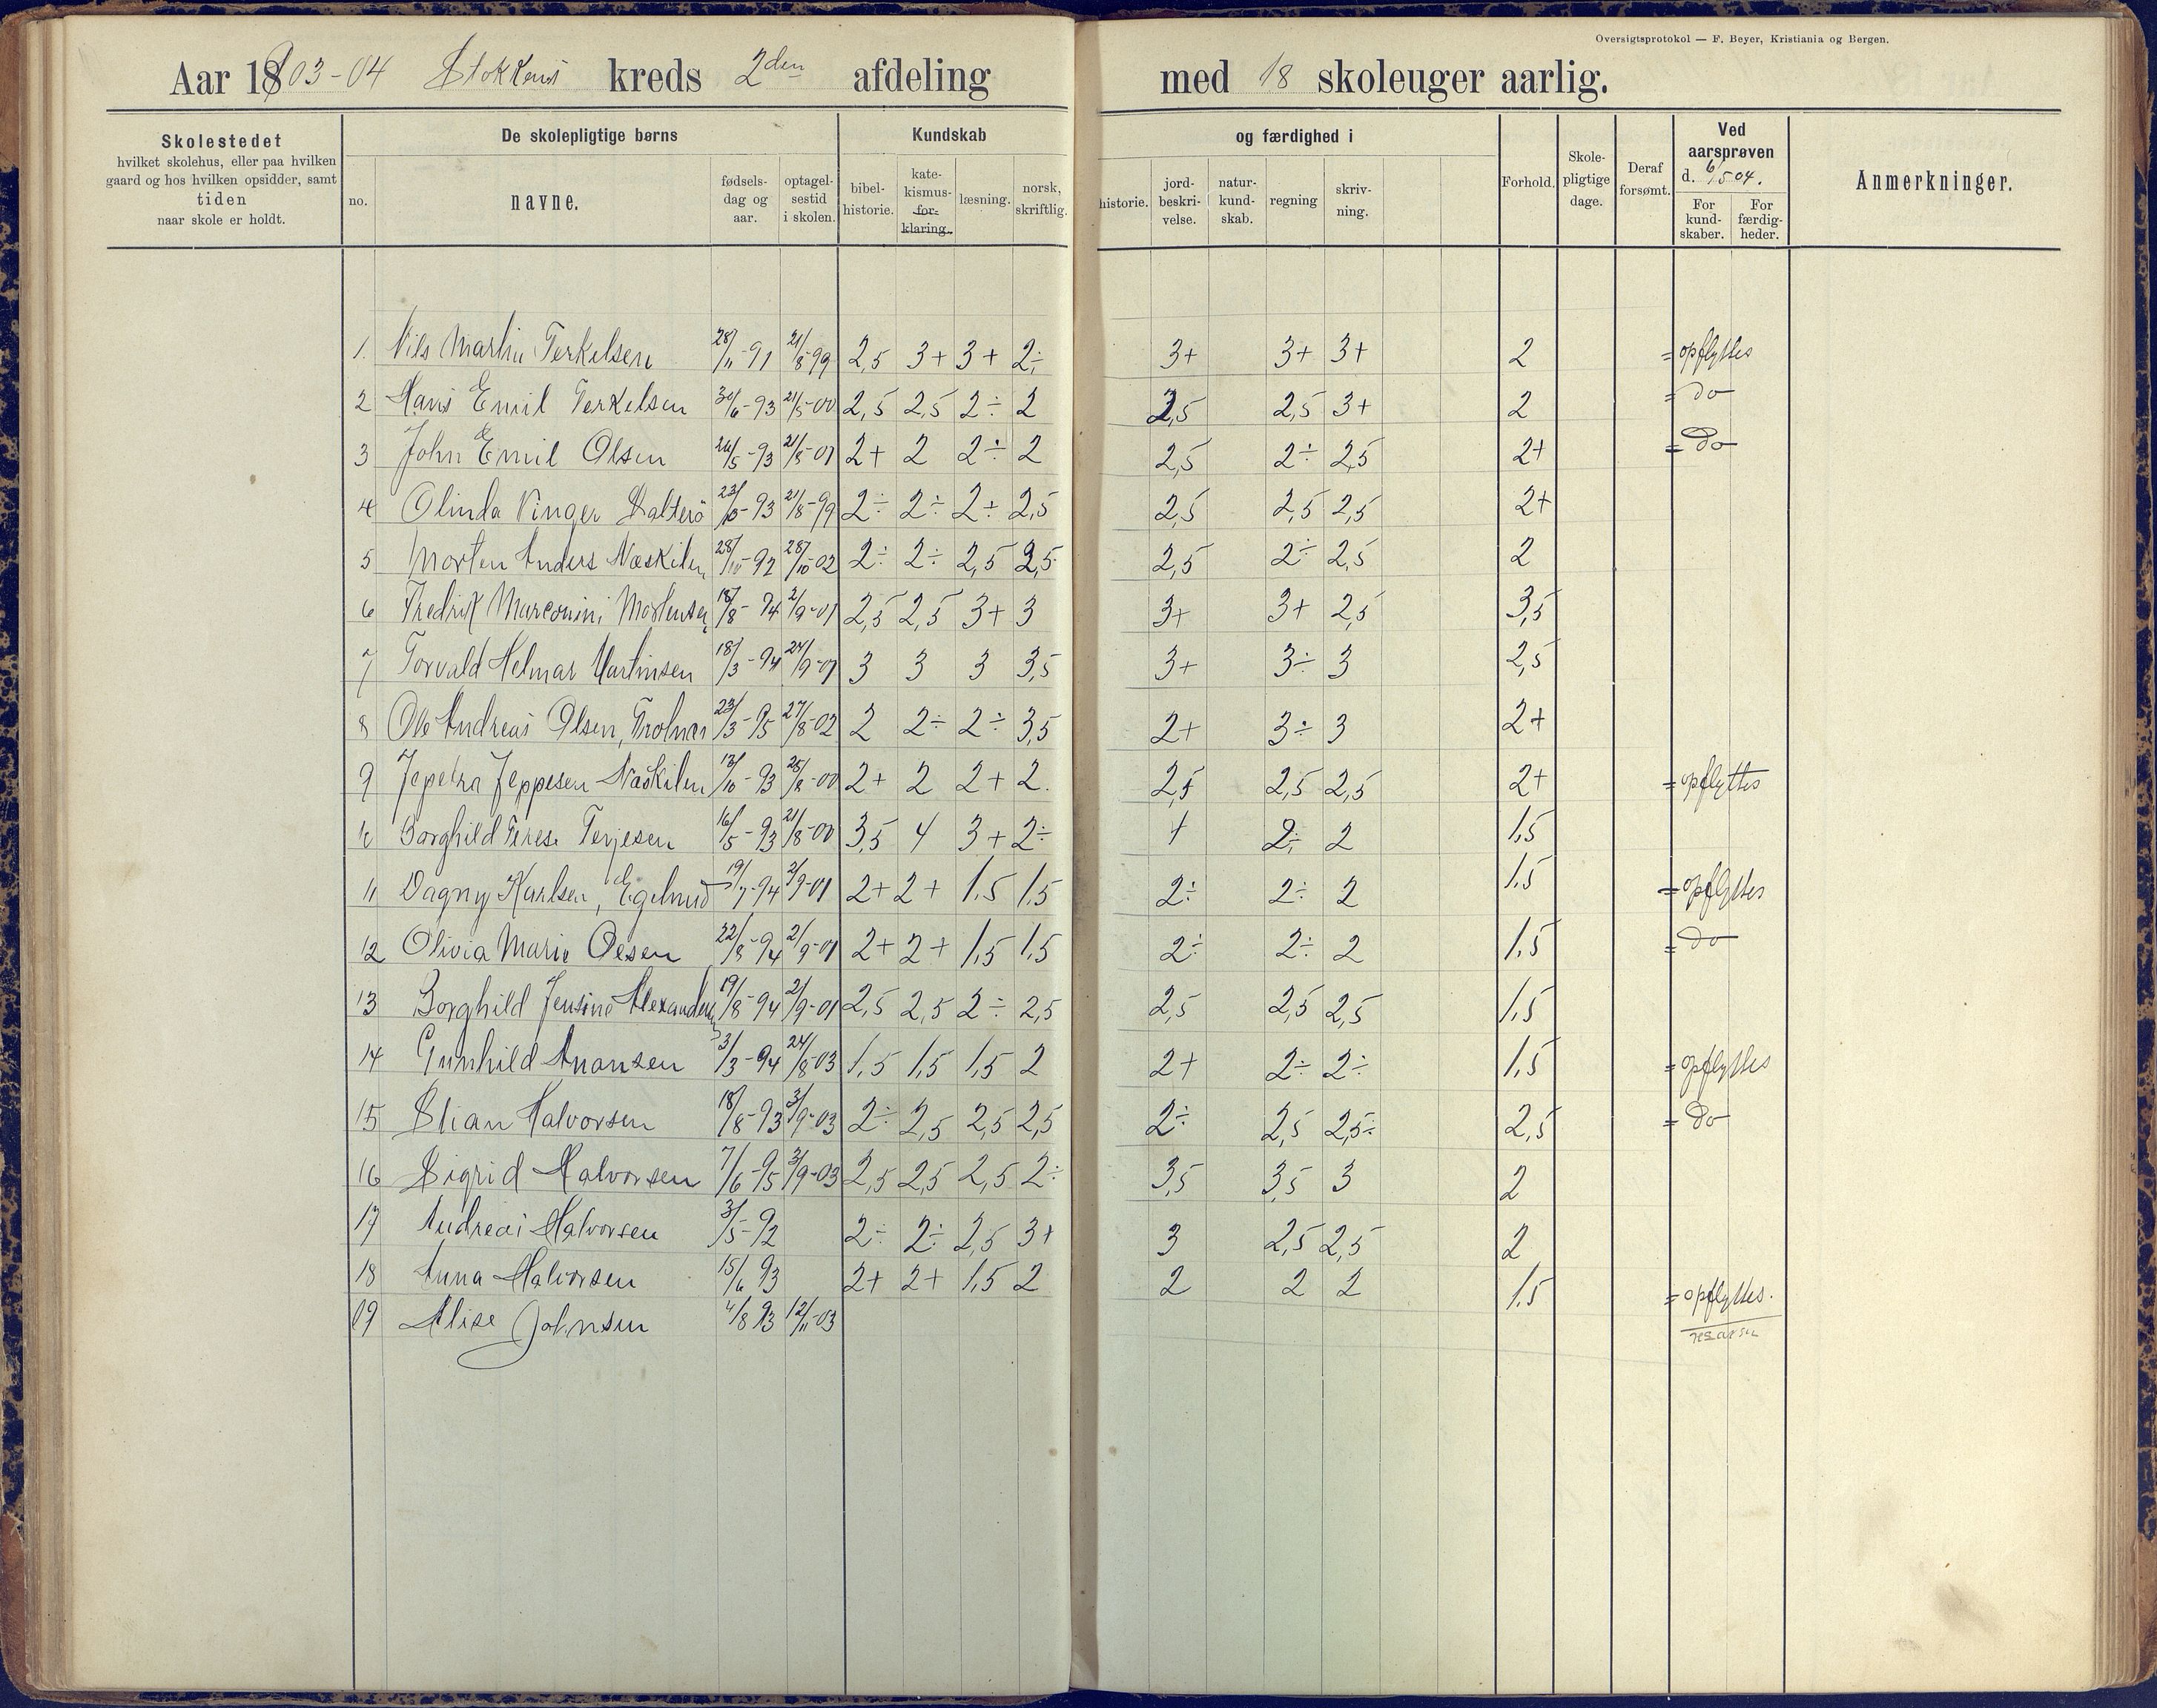 Oversigtsprotokol — F. Beyer, Kristiania og Bergen.
Aar 1903-04 Stokkens kreds 2den afdeling med 18 skoleuger aarlig.
Skolestedet hvilket skolehus, eller paa hvilken gaard og hos hvilken opsidder, samt tiden naar skole er holdt.
De skolepligtige børns
no. navne. fødselsdag og aar. optagelsestid i skolen.
Kundskab og færdighed i
bibelhistorie. katekismus- forklaring. læsning. norsk, skriftlig. historie. jordbeskrivelse. naturkundskab. regning skrivning.
Forhold. Skolepligtige dage. Deraf forsømt.
Ved aarsprøven d. 6/5 04.
For kundskaber. For færdigheder.
Anmerkninger.
1. Nils Martin Terkelsen 28/11-91 21/8-99 2,5 3+ 3+ 2÷ 3+ 3+ 3+ 2 = opflyttes
2 Hans Emil Terkelsen 30/6-93 21/5-00 2,5 2,5 2÷ 2 2,5 2,5 3+ 2 = do
3 John Emil Olsen 26/5-93 21/8-01 2+ 2 2÷ 2 2,5 2÷ 2,5 2+ = do
4 Olinda Vinger 23/10-93 21/8-99 2÷ 2÷ 2+ 2,5 2,5 2,5 2,5 2+
5 Morten Anders Næskilen 28/10-92 28/10-02 2÷ 2÷ 2,5 2,5 2,5 2÷ 2,5 2
6 Fredrik Marconini Mortensen 18/8-94 2/9-01 2,5 2,5 3+ 3 3+ 3+ 2,5 3,5
7 Torvald Helmar Martinsen 18/3-94 24/9-01 3 3 3 3,5 3+ 3÷ 3 2,5
8 Ole Andreas Olsen, 23/3-95 27/8-02 2 2÷ 2÷ 3,5 2+ 3÷ 3 2+
9 Jepetra Jeppesen Næskilen 13/10-93 25/8-00 2+ 2 2+ 2. 2,5 2,5 2,5 2+ = opflyttes
10 Borghild Terese Terjesen 16/5-93 21/8-00 3,5 4 3+ 2÷ 4 2÷ 2 1,5
11 Dagny Karlsen, 19/7-94 2/9-01 2+ 2+ 1,5 1,5 2÷ 2÷ 2 1,5 = opflyttes
12 Olivia Marie Olsen 22/8-94 2/9-01 2+ 2+ 1,5 1,5 2÷ 2÷ 2 1,5 = do
13 Borghild Jensine Alexandersen 19/8-94 2/9-01 2,5 2,5 2÷ 2,5 2,5 2,5 2,5 1,5
14 Gunhild Anonsen 3/3-94 24/8-03 1,5 1,5 1,5 2 2+ 2÷ 2÷ 1,5 = opflyttes
15 Stian Halvorsen 18/8-93 3/9-03 2÷ 2,5 2,5 2,5 2÷ 2,5 2,5÷ 2,5 = do
16 Sigrid Halvorsen 7/6-95 3/9-03 2,5 2,5 2,5 2÷ 3,5 3,5 3 2
17 Andreas Halvorsen 3/5-92 2÷ 2÷ 2,5 3+ 3 2,5 2,5 2
18 Anna Halvorsen 15/6 93 2+ 2+ 1,5 2 2 2 2 1,5 = opflyttes.
19 Alise Johnsen 4/8 93 12/11-03